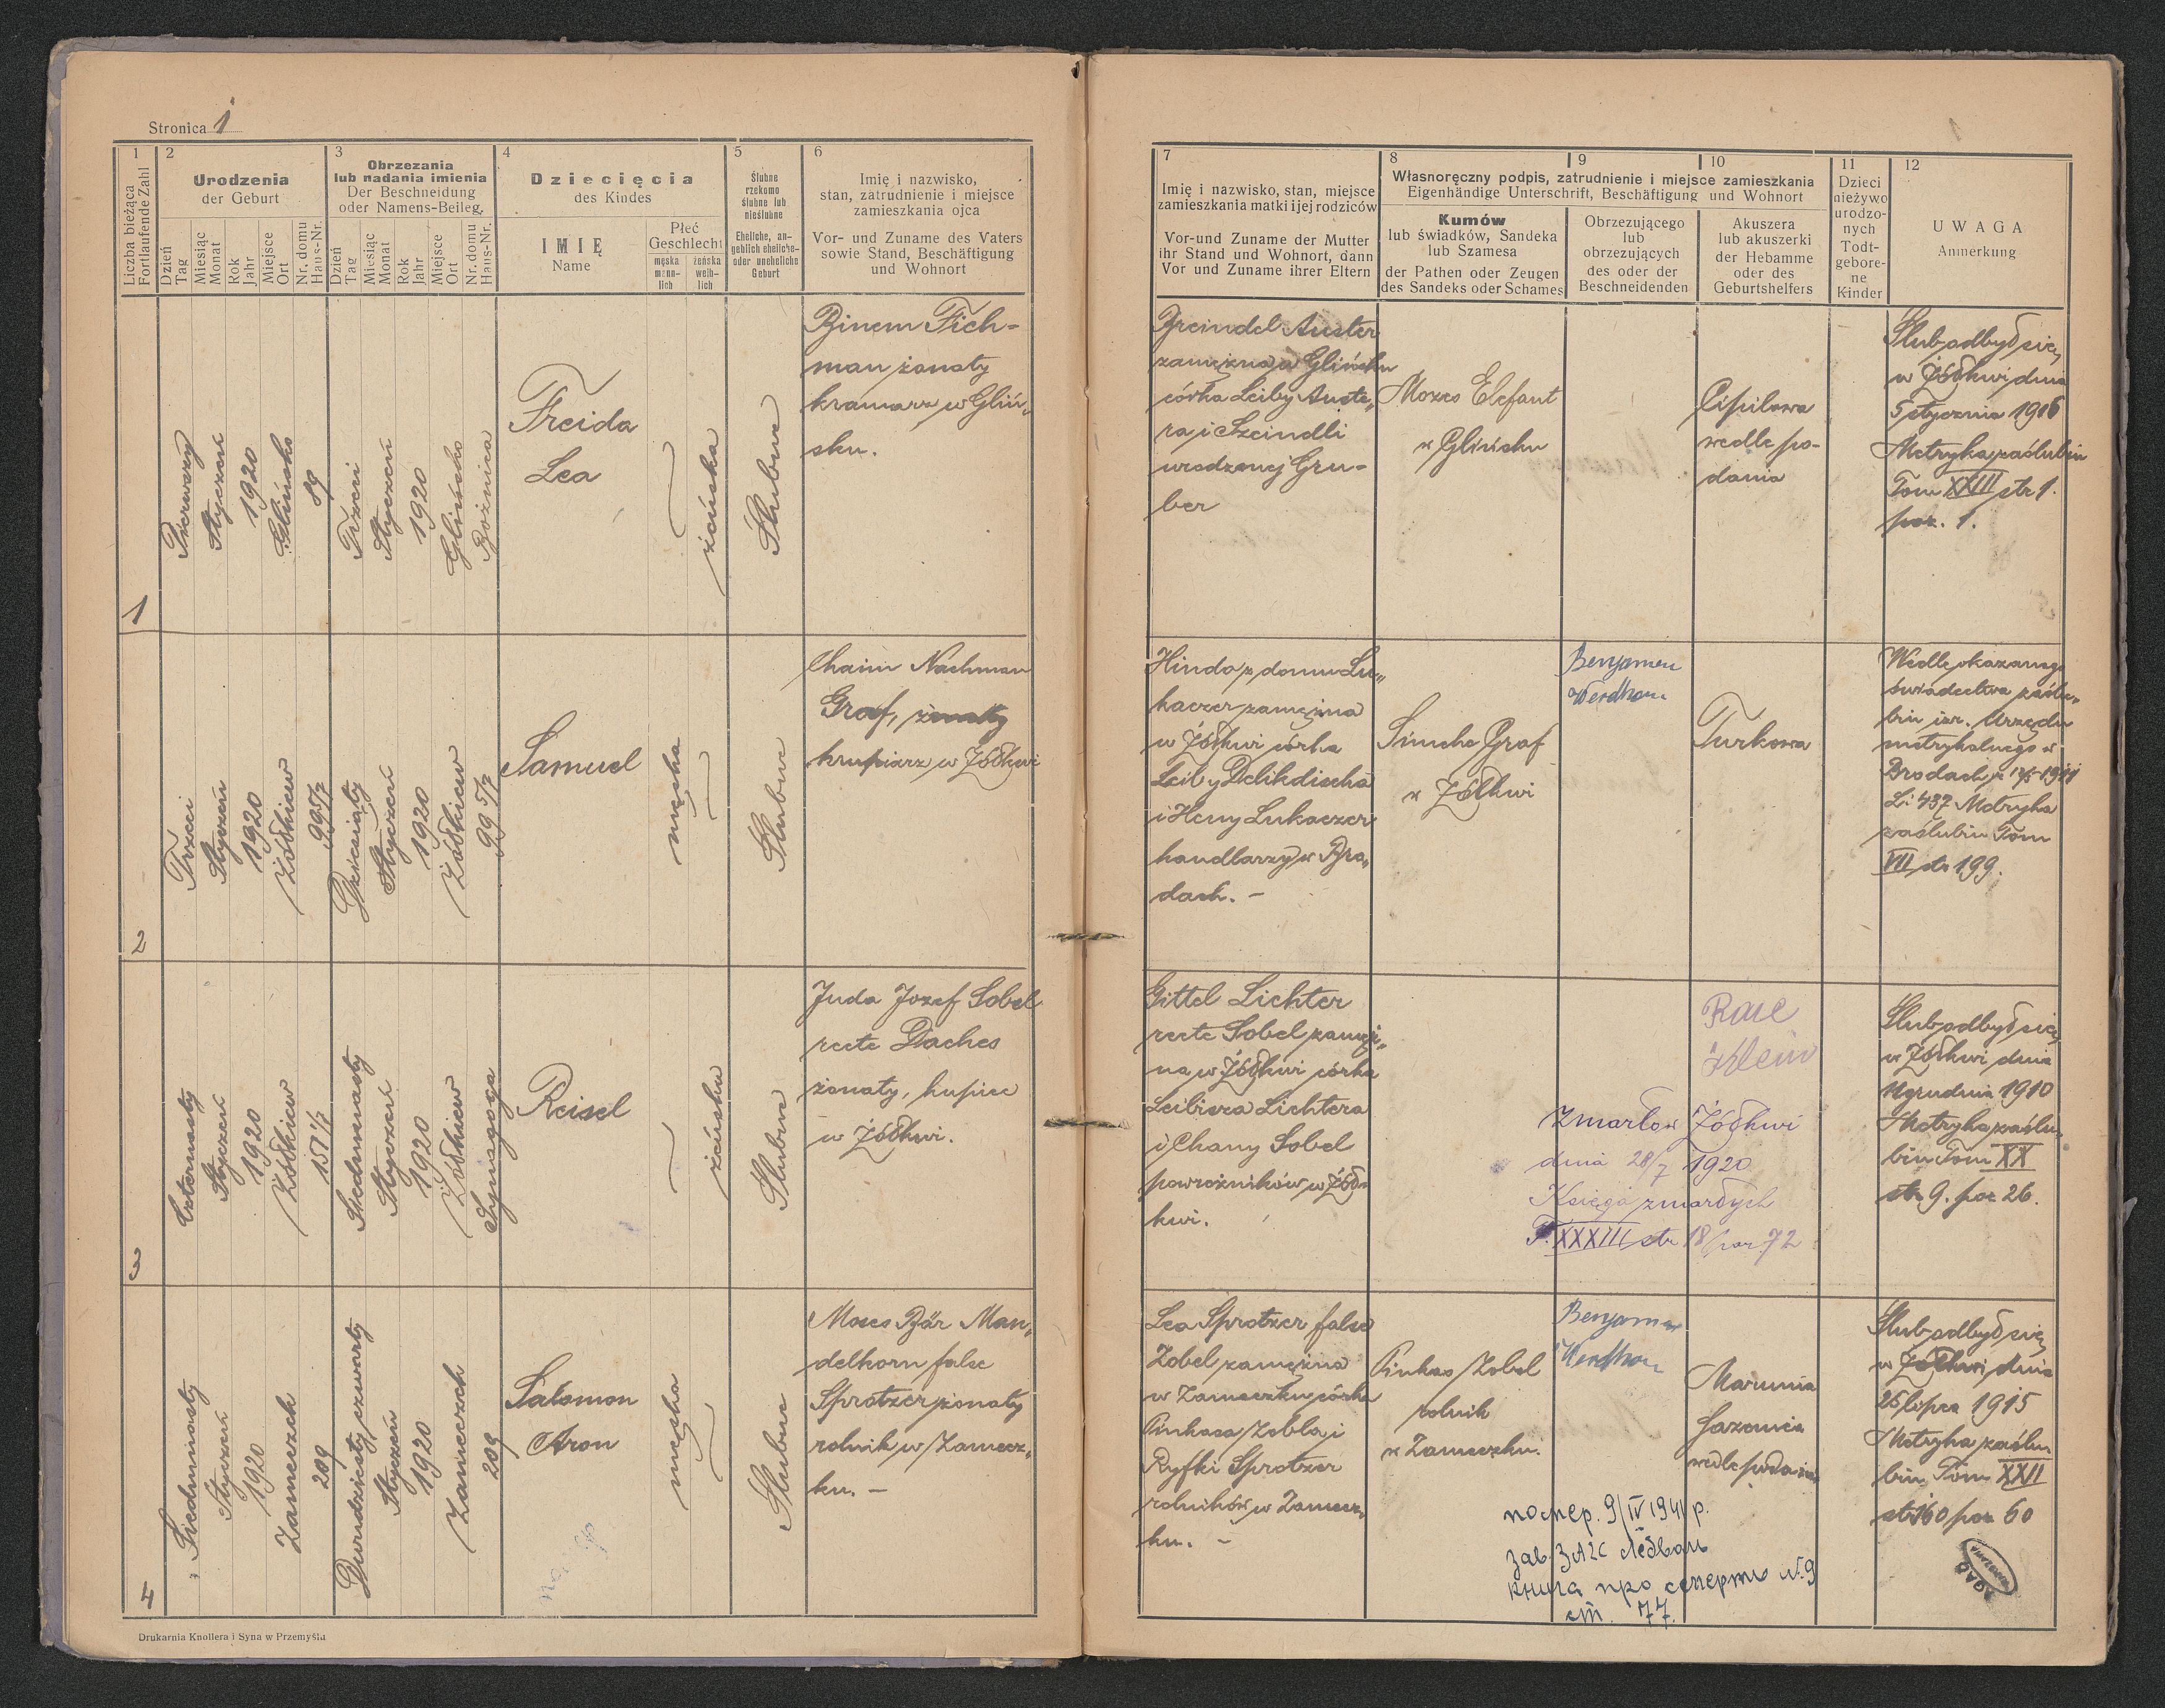 Stronica 1
1
Liczba bieżąca
Fortlaufende Zahl
2
Urodzenia
der Geburt
Dzień
Tag
Miesiąc
Monat
Rok
Jahr
Miejsce
Ort
Nr. domu
Haus-Nr.
3
Obrzezania
lub nadania imienia
Der Beschneidung
oder Namens-Beileg.
Dzień
Tag
Miesiąc
Monat
Rok
Jahr
Miejsce
Ort
Nr. domu
Haus-Nr.
4
Dziecięcia
des Kindes
IMIĘ
Name
Płeć
Geschlecht
męska
männ-
lich
żeńska
weib-
lich
5
Ślubne
rzekomo
ślubne lub
nieślubne
Eheliche, an-
geblich eheliche-
oder uneheliche
Geburt
6
Imię i nazwisko,
stan, zatrudnienie i miejsce
zamieszkania ojca
Vor- und Zuname des Vaters
sowie Stand, Beschäftigung
und Wohnort
7
Imię i nazwisko, stan, miejsce
zamieszkania matki i jej rodziców
Vor-und Zuname der Mutter
ihr Stand und Wohnort, dann
Vor und Zuname ihrer Eltern
8
9
10
Własnoręczny podpis, zatrudnienie i miejsce zamieszkania
Eigenhändige Unterschrift, Beschäftigung und Wohnort
Kumów
lub świadków, Sandeka
lub Szamesa
der Pathen oder Zeugen
des Sandeks oder Schames
Obrzezującego
lub
obrzezujących
des oder der
Beschneidenden
Akuszera
lub akuszerki
der Hebamme
oder des
Geburtshelfers
11
Dzieci
nieżywo
urodzo-
nych
Todt-
gebore-
ne
Kinder
12
UWAGA
Anmerkung
1
Pierwszy
Styczeń
1920
Glińsko
89
Trzeci
Styczeń
1920
Glińsko
Bożnica
Freida
Lea
żeńska
Ślubne
Binem Fich-
man żonaty
kramarz w Gliń-
sku.
Breindel Auster
zamężna w Glińsku
córka Leiby Auste-
ra i Szeindli
urodzonej Gru-
ber
Mozes Elefant
w Glińsku
wedle po-
dania
Ślub odbył się
w Żółkwi dnia
5 stycznia 1916
Metryka zaślubin
Tom XXIII str 1.
poz. 1.
2
Trzeci
Styczeń
1920
Żółkiew
995/2
Dziesiąty
Styczeń
1920
Żółkiew
99 5/2
Samuel
męska
Ślubne
Chaim Nachman
Graf, żonaty
krupiarz w Żółkwi
Hinda z domu Lu-
kaczer zamężna
w Żółkwi córka
Leiby Delikdischa
i Heny Lukaczer
handlarzy w Bro-
dach. -
Simche Graf
w Żółkwi
Benjamen
Werdhorn
Turkowa
Wedle okazanego
świadectwa zaślu-
bin izr. Urzędu
metrykalnego w
Brodach
L: 437 Metryka
zaślubin Tom
VII str 199.
3
Czternasty
Styczeń
1920
Żółkiew
151 1/2
Siedmnasty
Styczeń
1920
Żółkiew
Synagoga
Reisel
żeńska
Ślubne
Juda Jozef Sobel
recte Daches
żonaty, kupiec
w Żółkwi.
Gittel Lichter
recte Sobel zamęż-
na w Żółkwi córka
Leibisza Lichtera
i Chany Sobel
powroźników w Żół-
kwi.
Klein
Zmarła w Żółkwi
dnia 28/7 1920
Księga zmarłych
T. XXXIII str 18 poz. 72
Ślub odbył się
w Żółkwi dnia
11 grudnia 1910
Metryka zaślu-
bin Tom XX
str 9. poz 26.
4
Siedmnasty
Styczeń
1920
Zameczek
209
Dwudziesty czwarty
Styczeń
1920
Zameczek
209
Salomon
Aron
męska
Ślubne
Moses Bär Man-
delkorn false
Sprotzer żonaty
rolnik w Zamecz-
ku. -
Lea Sprotzer false
Zobel zamężna
w Zameczku córka
Pinkasa Zobla i
Ryfki Sprotzer
rolników w Zamecz-
ku. -
Pinkas Zobel
rolnik
w Zameczku.
Benjamen
Werdhorn
Marunia
wedle podania
помер. 9/IV 1941 р.
книга про смерть №9
ст. 77.
Ślub odbył się
w Żółkwi dnia
25 lipca 1915
Metryka zaślu-
bin Tom XXII
str 160 poz 60
Drukarnia Knollera i Syna w Przemyślu